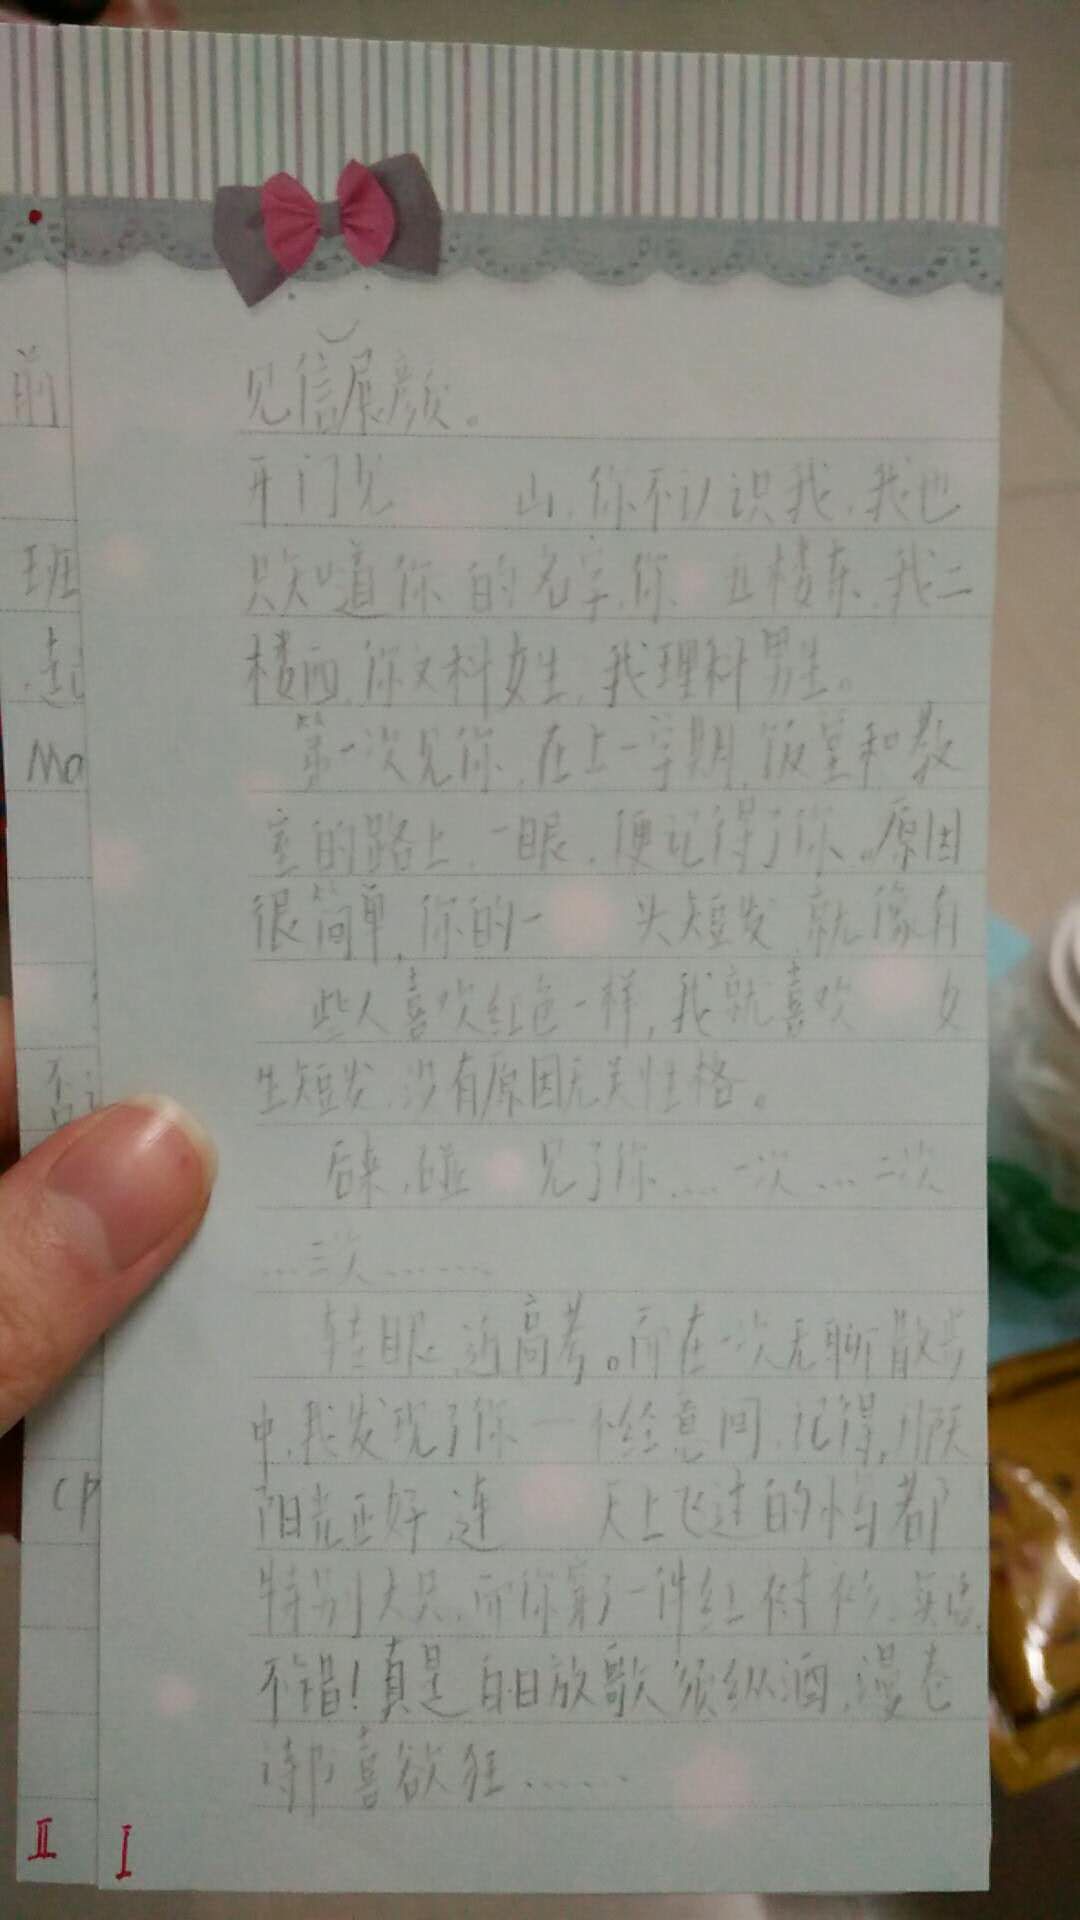 见信展颜。
开门见山,你不认识我,我也
只知道你的名字,你五楼东,我二
楼西,你文科女生,我理科男生。
第一次见你,在上一学期,饭堂和教
室的路上,一眼,便记得了你。原因
很简单,你的一头短发,就像有
些人喜欢红色一样,我就喜欢女
生短发,没有原因无关性格。
后来,碰见了你....一次....二次
...三次.......
转眼,近高考。而在一次无聊散步
中,我发现了你一不经意间,记得,那天
阳光正好,连天上飞过的鸟都
特别大只,而你穿了一件红衬衫,
不错!真是白日放歌须纵酒,漫卷
诗书喜欲狂......
I
前
班
起
Ma
否
II